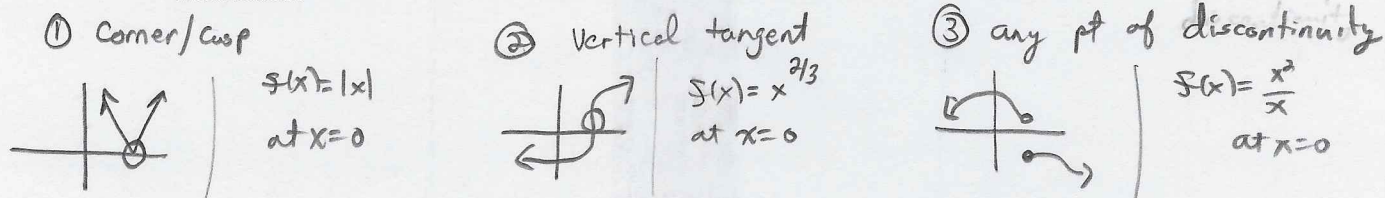 ① Corner/Cusp
f(x)=|x|
at x=0
② Vertical tangent
f(x)=x^2/3
at x=0
③ any pt of discontinuity
f(x)=x²/x
at x=0